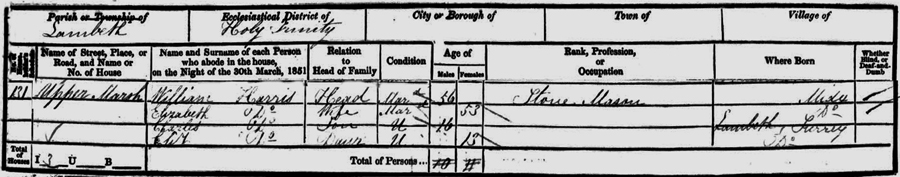 Parish or Township of Ecclesiastical District of City or Borough of Town of Village of
Lambeth Holy Trinity
Name of Street, Place, or Road, and Name or No. of House
Name and Surname of each Person who abode in the house, on the Night of the 30th March, 1851
Relation to Head of Family
Condition
Age of
Males Females
Rank, Profession, or Occupation
Where Born
Whether Blind, or Deaf-and-Dumb
131 Upper Marsh William Harris Head Mar 56 Stone Mason Midx
Elizabeth Do Wife Mar 53 Do
Charles Do Son U 16 Lambeth Surrey
Do Daur U 13 Do
Total of Houses 13 U B Total of Persons...